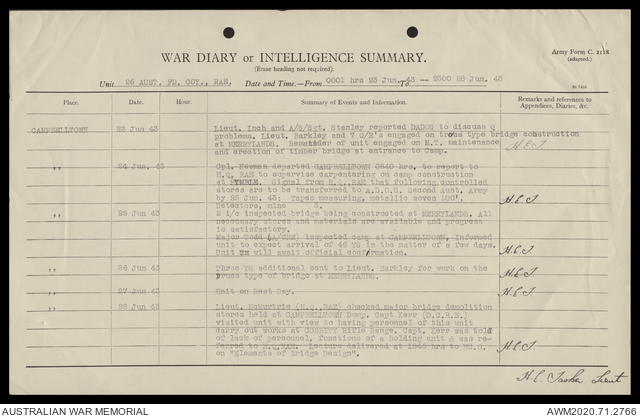 Army Form C. 2118
(adapted.)
WAR DIARY or INTELLIGENCE SUMMARY.
(Erase heading not required).
Unit 26 AUST. FD. COY., RAE. Date and Time.—From 0001 hrs 23 Jun. 43 To — 2300 28 Jun. 43
Place. Date. Hour. Summary of Events and Information. Remarks and references to Appendices, Diaries, &c.
CAMPBELLTOWN 23 Jun 43 Lieut. Inch and A/S/Sgt. Stanley reported DADOS to discuss Q
problems. Lieut. Barkley and 7 O/R's engaged on truss type bridge construction
at MERRYLANDS. Remainder of unit engaged on M.T. maintenance
and erection of timber bridge at entrance to Camp. H.C.T.
,, 24 Jun. 43 Cpl. Newman departed CAMPBELLTOWN 0840 hrs. to report to
H.Q. RAE to supervise carpentering on camp construction
at PYMBLE. Signal from H.Q., RAE that following controlled
stores are to be transferred to A.D.O.S. Second Aust. Army
by 25 Jun. 43: Tapes measuring, metallic woven 100', H.C.T.
Detectors, mine 3.
,, 25 Jun 43 2 i/c inspected bridge being constructed at MERRYLANDS. All
necessary stores and materials are available and progress
is satisfactory.
Major Todd (A/CRE) inspected camp at CAMPBELLTOWN, Informed
unit to expect arrival of 46 YS in the matter of a few days.
Unit will await official confirmation. H.C.T.
,, 26 Jun 43 Three YS additional sent to Lieut. Barkley for work on the
truss type of bridge at MERRYLANDS. H.C.T.
,, 27 Jun 43 Unit on Rest Day. H.C.T.
,, 28 Jun 43 Lieut. McMurtrie (H.Q. RAE) checked major bridge demolition
stores held at CAMPBELLTOWN Dump. Capt Kerr (D.C.R.E.)
visited unit with view to having personnel of this unit
carry out works at Rifle Range. Capt. Kerr was told
of lack of personnel, functions of a holding unit & was re-
ferred to H.Q. RAE. Lecture delivered at 1945 hrs to
on "Elements of Bridge Design". H.C.T.
H.C. Tasker Lieut
AUSTRALIAN WAR MEMORIAL AWM2020.71.2766